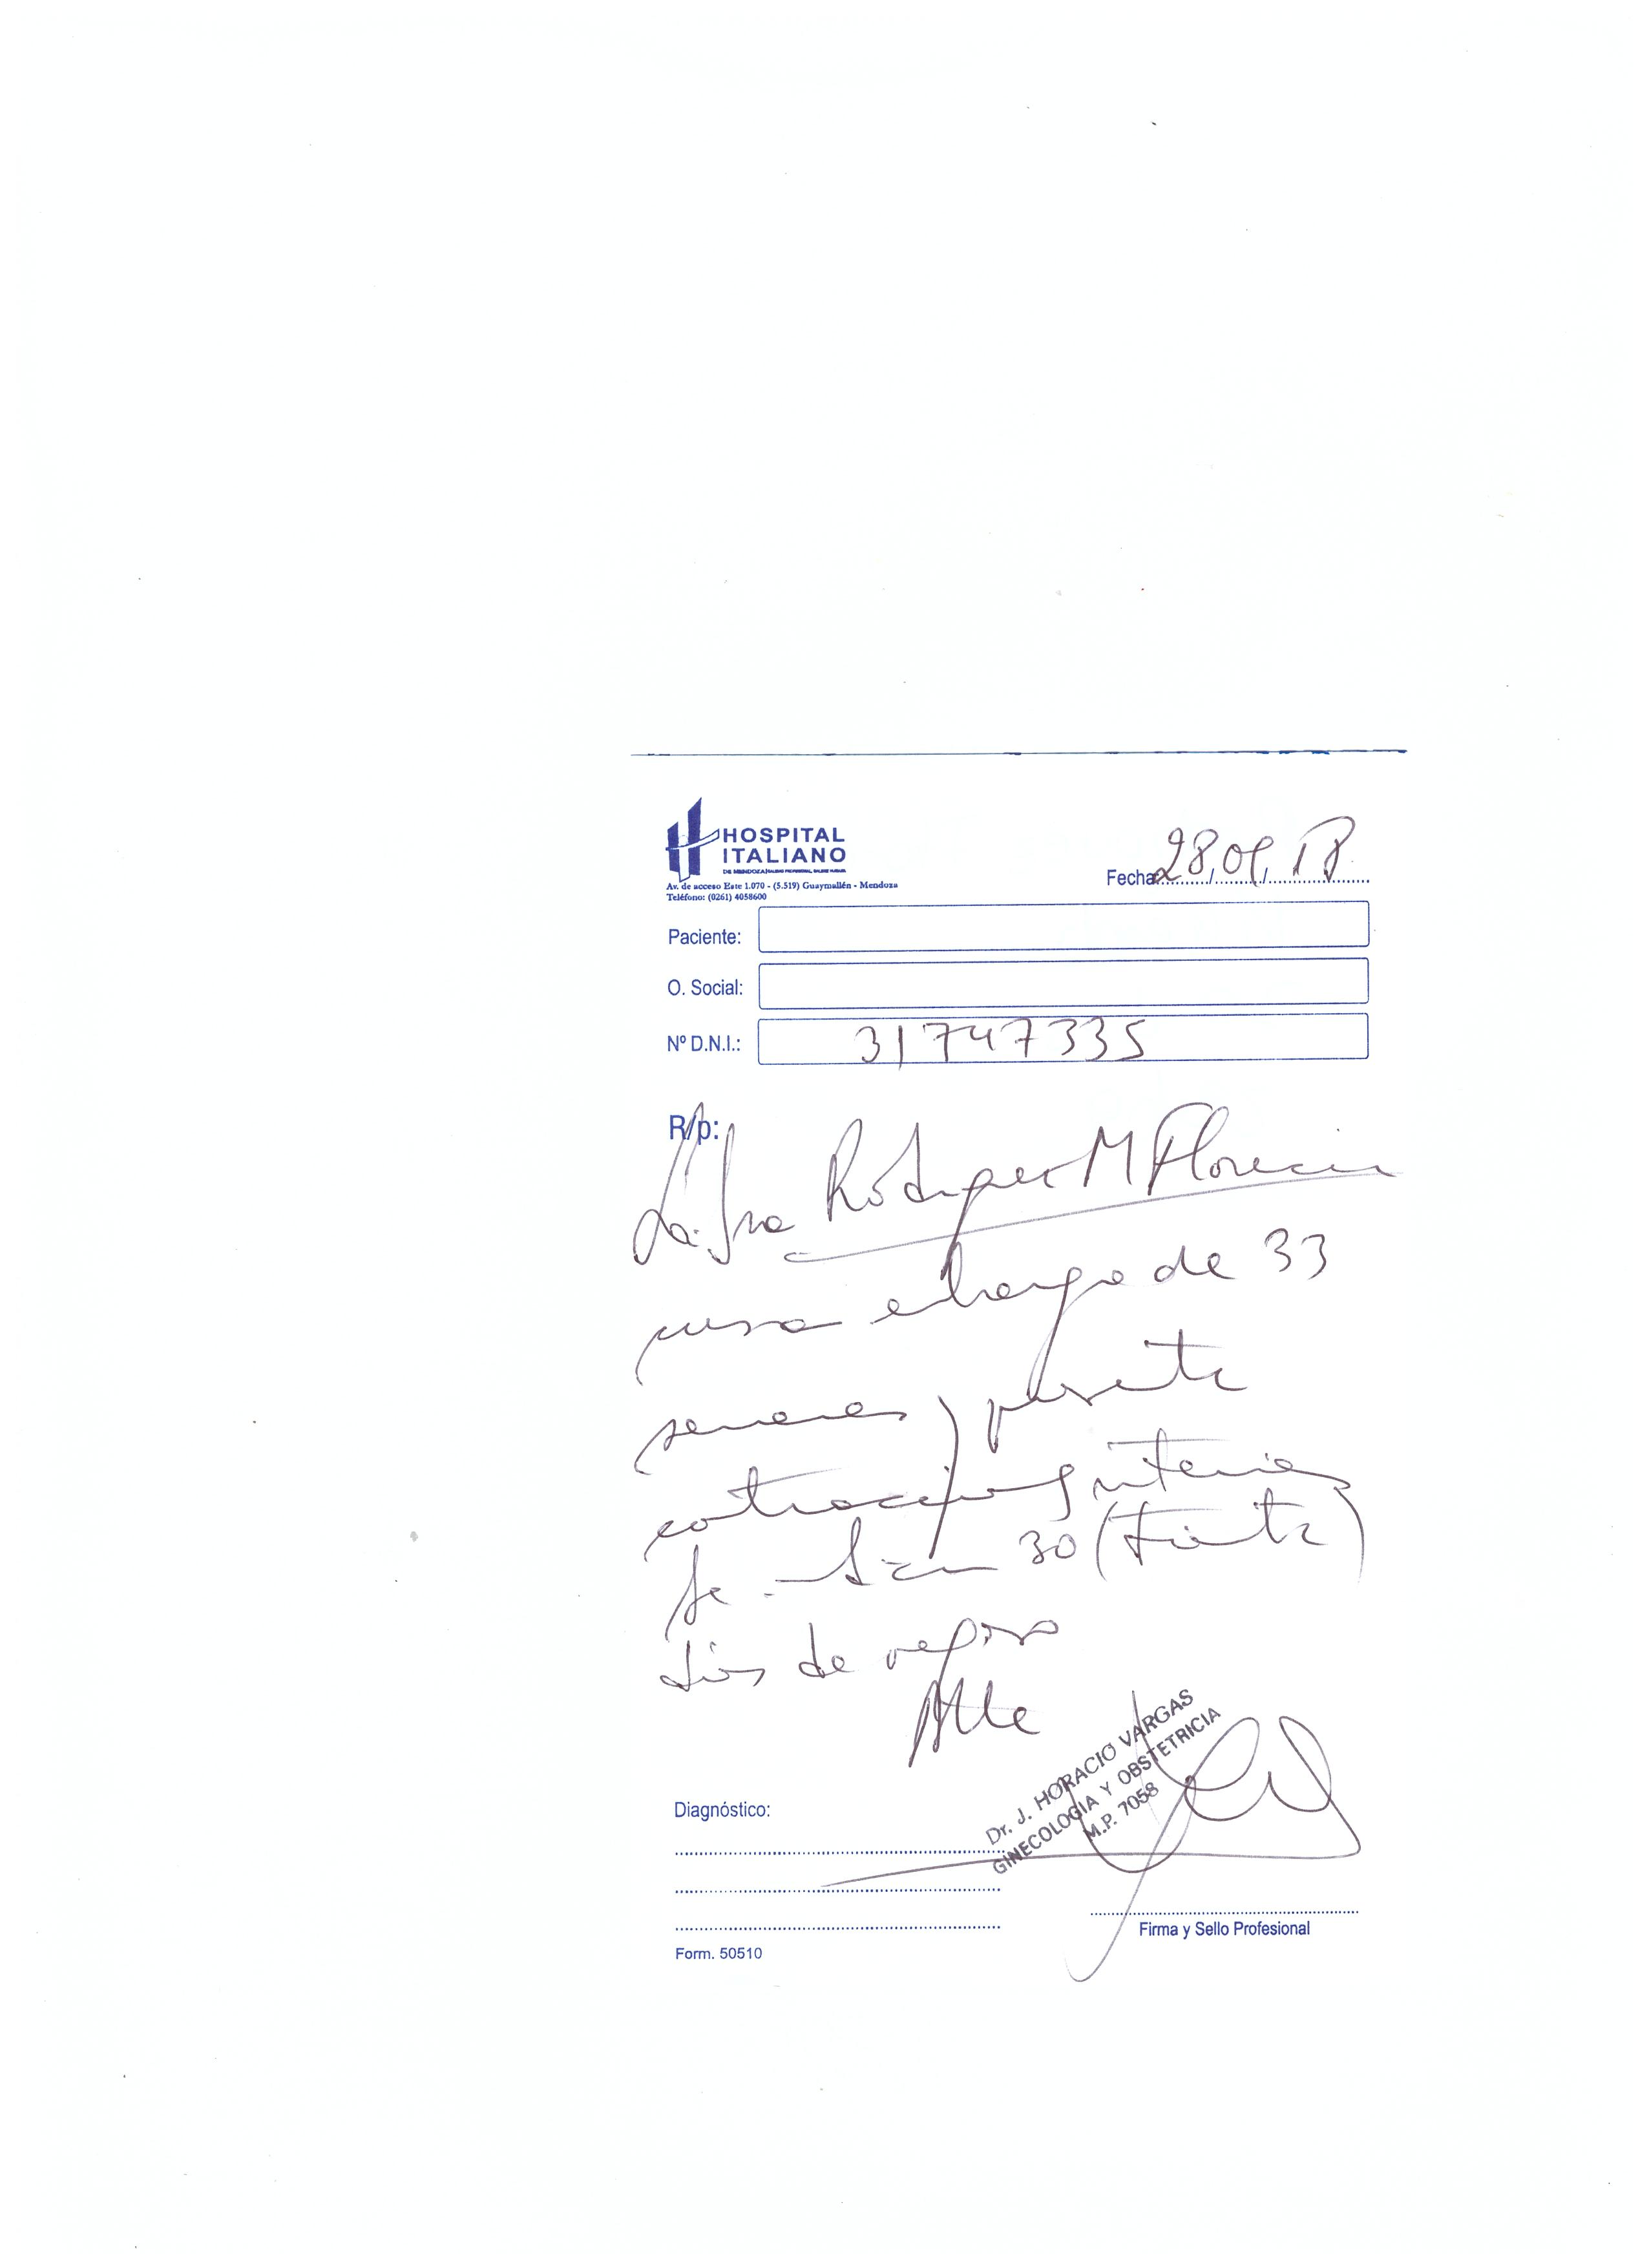 HOSPITAL
ITALIANO
DE MENDOZA
Av. de acceso Este 1.070 - (5.519) Guaymallén - Mendoza
Teléfono: (0261) 4058600
Fecha: 28/09/18
Paciente:
O. Social:
Nº D.N.I.: 31747335
R/p:
La Sra Rodriguez M Florencia
cursa embarazo de 33
semanas y presenta
contracciones uterinas
Se 30 (treinta)
días de reposo
Atte
Dr. J. HORACIO VARGAS
GINECOLOGIA Y OBSTETRICIA
M.P. 7058
Diagnóstico:
Firma y Sello Profesional
Form. 50510